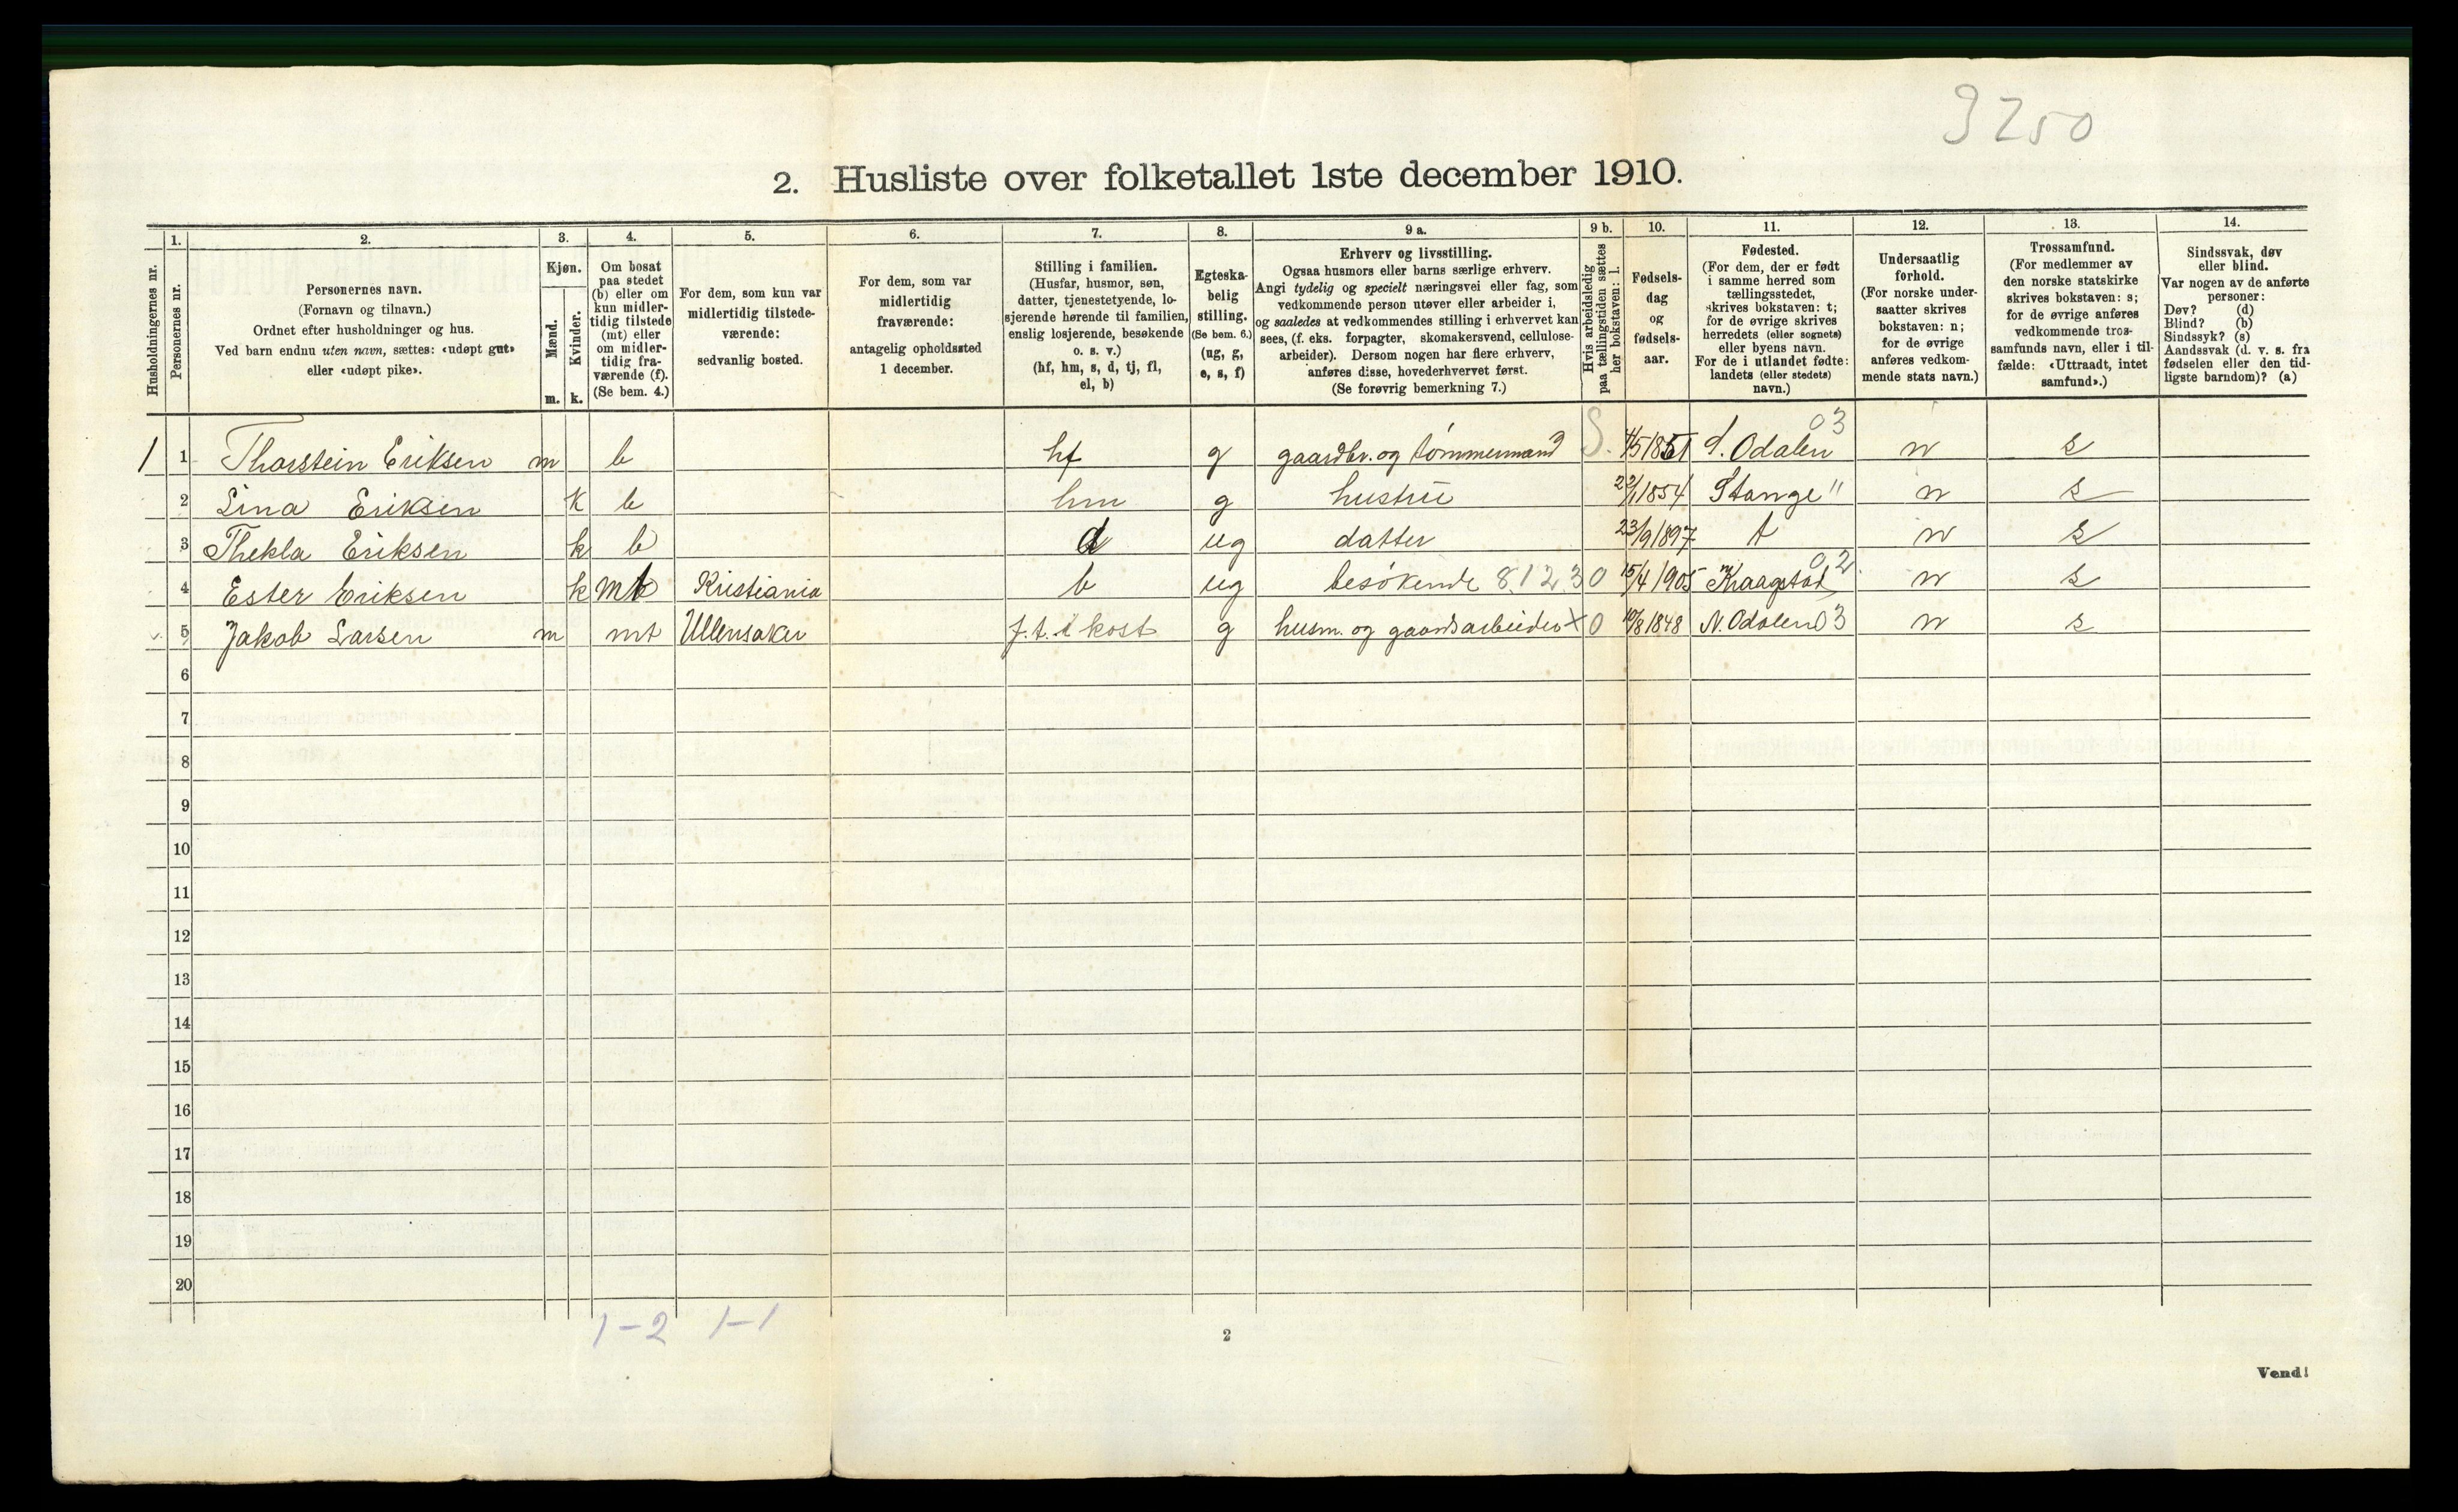 3250
2. Husliste over folketallet 1ste december 1910.
Husholdningernes nr.
1.
Personernes nr.
2.
Personernes navn.
(Fornavn og tilnavn.)
Ordnet efter husholdninger og hus.
Ved barn endnu uten navn, sættes: «udøpt gut»
eller «udøpt pike».
3.
Kjøn.
Mænd.
Kvinder.
m. k.
4.
Om bosat
paa stedet
(b) eller om
kun midler-
tidig tilstede
(mt) eller
om midler-
tidig fra-
værende (f).
(Se bem. 4.)
5.
For dem, som kun var
midlertidig tilstede-
værende:
sedvanlig bosted.
6.
For dem, som var
midlertidig
fraværende:
antagelig opholdssted
1 december.
7.
Stilling i familien.
(Husfar, husmor, søn,
datter, tjenestetyende, lo-
sjerende hørende til familien,
enslig losjerende, besøkende
o. s. v.)
(hf, hm, s, d, tj, fl,
el, b)
8.
Egteska-
belig
stilling.
(Se bem. 6.)
(ug, g,
e, s, f)
9 a.
Erhverv og livsstilling.
Ogsaa husmors eller barns særlige erhverv.
Angi tydelig og specielt næringsvei eller fag, som
vedkommende person utøver eller arbeider i,
og saaledes at vedkommendes stilling i erhvervet kan
sees, (f. eks. forpagter, skomakersvend, cellulose-
arbeider). Dersom nogen har flere erhverv,
anføres disse, hovederhvervet først.
(Se forøvrig bemerkning 7.)
9 b.
Hvis arbeidsledig
paa tællingstiden sættes
her bokstaven: l.
10.
Fødsels-
dag
og
fødsels-
aar.
11.
Fødested.
(For dem, der er født
i samme herred som
tællingsstedet,
skrives bokstaven: t;
for de øvrige skrives
herredets (eller sognets)
eller byens navn.
For de i utlandet fødte:
landets (eller stedets)
navn.)
12.
Undersaatlig
forhold.
(For norske under-
saatter skrives
bokstaven: n;
for de øvrige
anføres vedkom-
mende stats navn.)
13.
Trossamfund.
(For medlemmer av
den norske statskirke
skrives bokstaven: s;
for de øvrige anføres
vedkommende tros-
samfunds navn, eller i til-
fælde: «Uttraadt, intet
samfund».)
14.
Sindssvak, døv
eller blind.
Var nogen av de anførte
personer:
Døv? (d)
Blind? (b)
Sindssyk? (s)
Aandssvak (d. v. s. fra
fødselen eller den tid-
ligste barndom)? (a)
1 1 Thorstein Eriksen m b hf g gaardbr. og tømmermand S. 4/5 1851 S. Odalen 03 n s
2 Lina Eriksen k b hm g hustru 22/1 1854 Stange " n s
3 Thekla Eriksen k b d ug datter 23/9 1897 t n s
4 Ester Eriksen k mt Kristiania b ug besøkende 8123 0 15/4 1905 Kraagstad 02 n s
5 Jakob Larsen m mt Ullensaker f.t. i kost g husm. og gaardsarbeider x 0 10/8 1848 N. Odalen 03 n s
6
7
8
9
10
11
12
13
14
15
16
17
18
19
20
1-2 1-1
2
Vend!